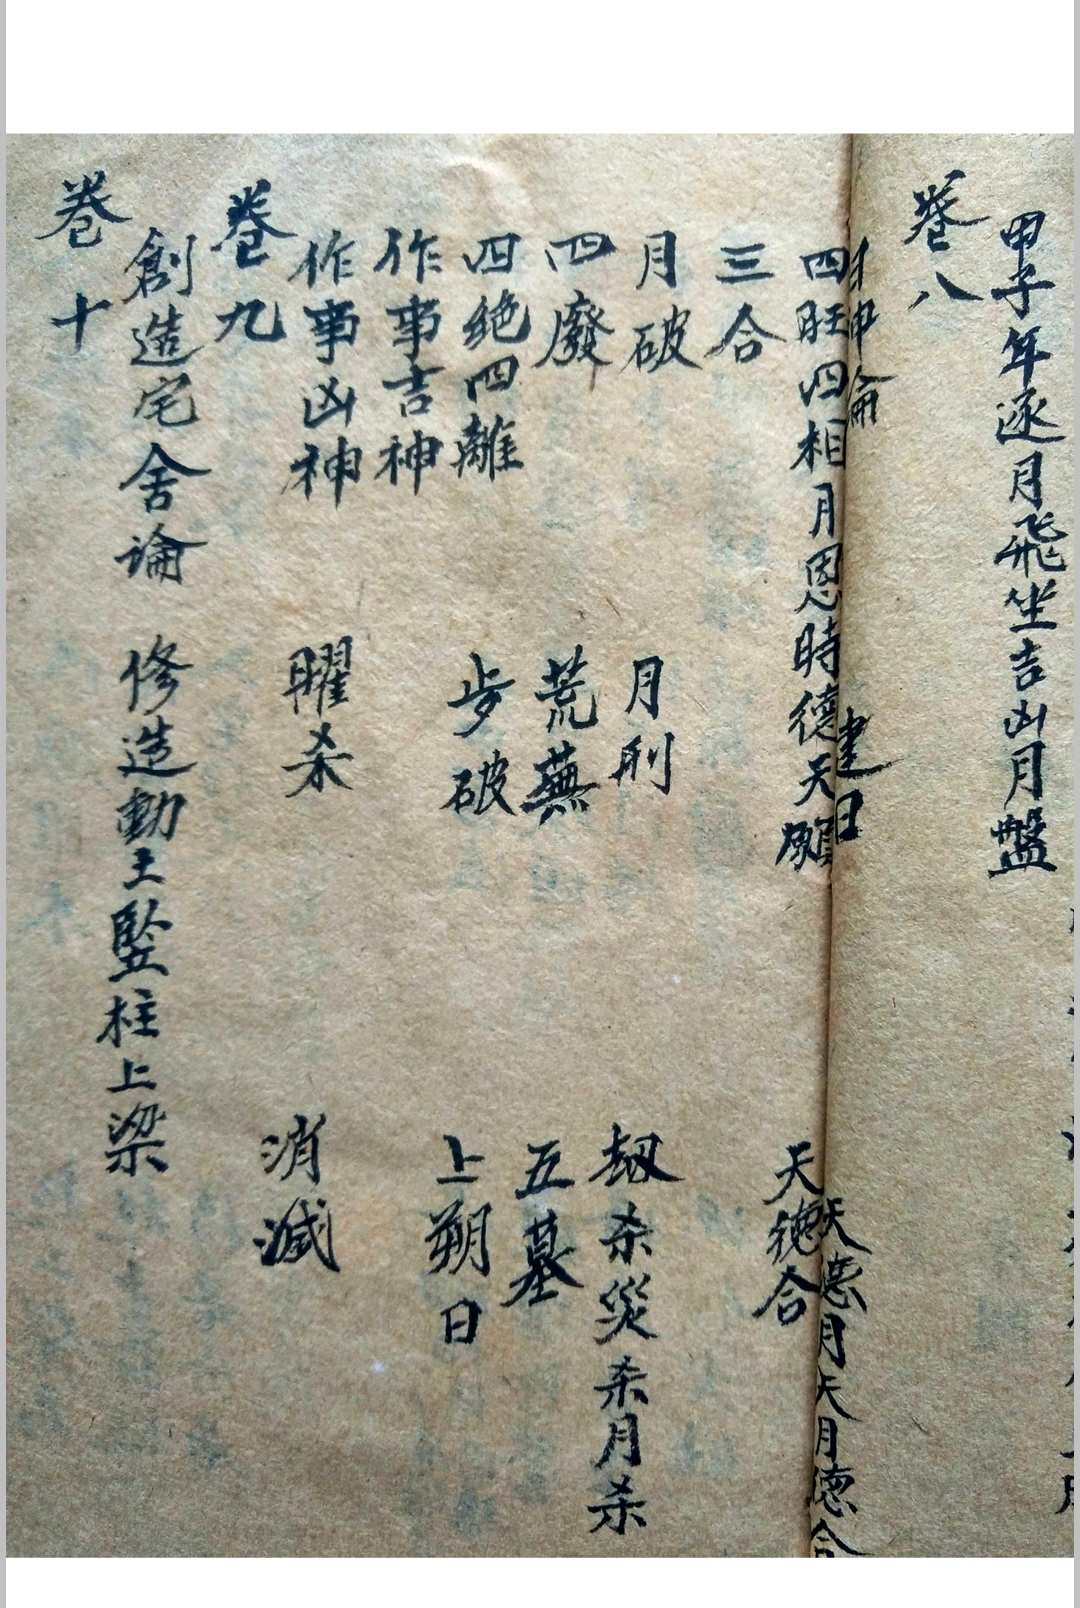 甲子年逐月飛坐吉凶月盤
卷八
神論 建日 天德月 天月德合
四旺四相月恩時德天願 天德合
三合
月破 月刑 劫杀災杀月杀
四廢 荒蕪 五墓
四絶四離 步破 上朔日
作事吉神
作事凶神 曜杀 消滅
卷九
創造宅舍論 修造動土竪柱上梁
卷十